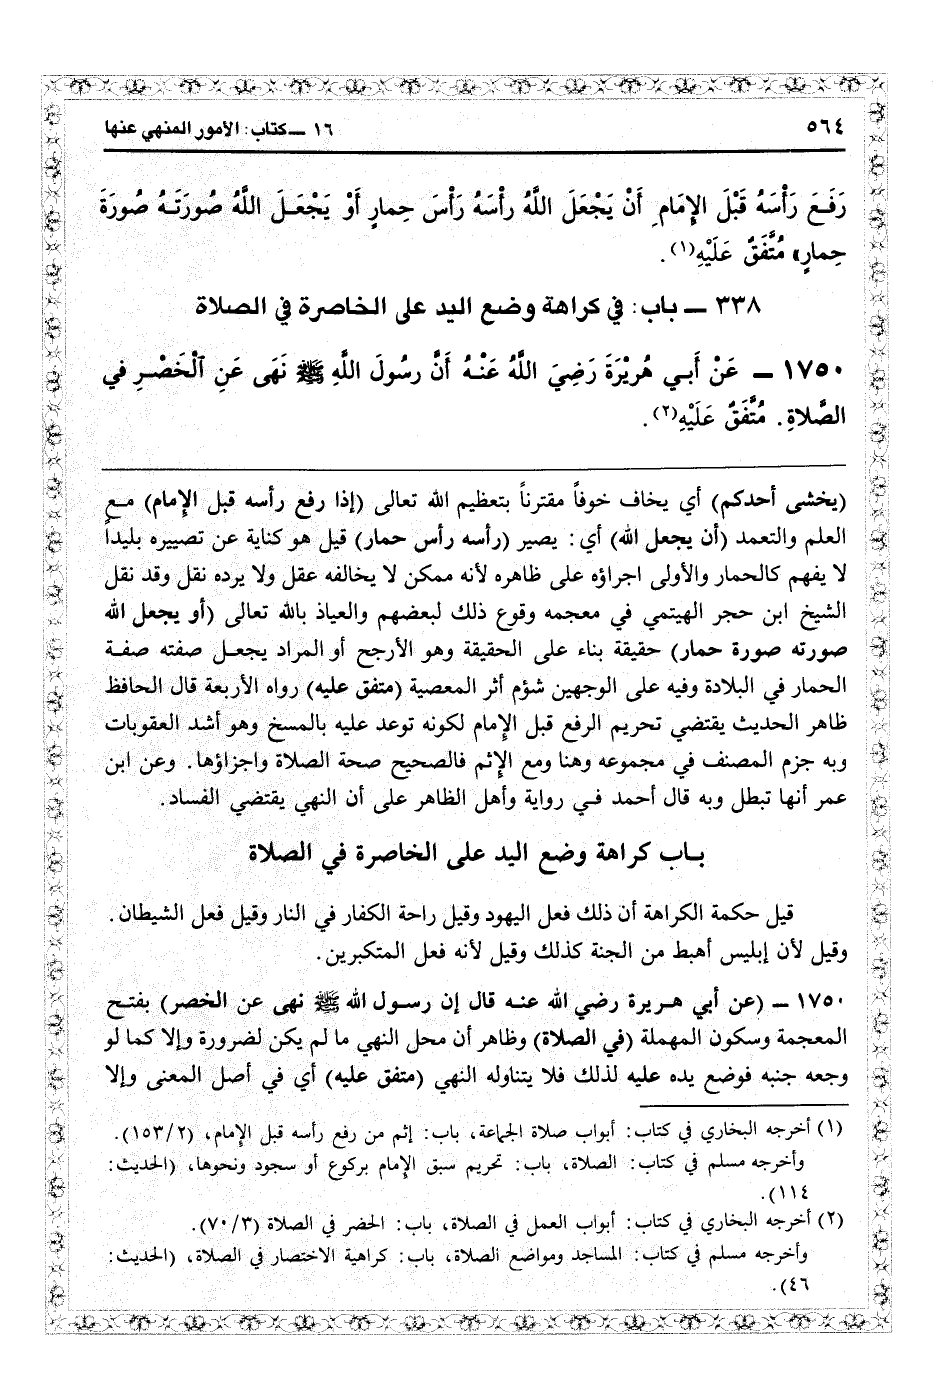 ٥٦٤
١٦ ــ كتاب: الأمور المنهي عنها
رَفَـعَ رَأْسَهُ قَبْلَ الإِمَامِ أَنْ يَجْعَلَ اللَّهُ رأْسَهُ رَأْسَ حِمارٍ أَوْ يَجْعَـلَ اللَّهُ صُورَتَـهُ صُورَةَ
حِمارٍ» مُتَّفَقٌ عَلَيْهِ(١).
٣٣٨ ــ باب: في كراهة وضع اليد على الخاصرة في الصلاة
١٧٥٠ ــ عَنْ أَبـي هُرَيْرَةَ رَضِيَ اللَّهُ عَنْـهُ أَنَّ رسُولَ اللَّهِ ﷺ نَهَى عَنِ ٱلْخَصْـرِ في
الصَّلاةِ. مُتَّفَقٌ عَلَيْهِ(٢).
(يخشى أحدكم) أي يخاف خوفاً مقترناً بتعظيم الله تعالى (إذا رفع رأسه قبل الإِمام) مـع
العلم والتعمد (أن يجعل الله) أي: يصير (رأسه رأس حمار) قيل هو كناية عن تصييره بليداً
لا يفهم كالحمار والأولى اجراؤه على ظاهره لأنه ممكن لا يخالفه عقل ولا يرده نقل وقد نقل
الشيخ ابن حجر الهيتمي في معجمه وقوع ذلك لبعضهم والعياذ بالله تعالى (أو يجعل الله
صورته صورة حمار) حقيقة بناء على الحقيقة وهو الأرجح أو المراد يجعـل صفته صفـة
الحمار في البلادة وفيه على الوجهين شؤم أثر المعصية (متفق عليه) رواه الأربعة قال الحافظ
ظاهر الحديث يقتضي تحريم الرفع قبل الإِمام لكونه توعد عليه بالمسخ وهو أشد العقوبات
وبه جزم المصنف في مجموعه وهنا ومع الإِثم فالصحيح صحة الصلاة واجزاؤها. وعن ابن
عمر أنها تبطل وبه قال أحمد فـي رواية وأهل الظاهر على أن النهي يقتضي الفساد.
بـاب كراهة وضع اليد على الخاصرة في الصلاة
قيل حكمة الكراهة أن ذلك فعل اليهود وقيل راحة الكفار في النار وقيل فعل الشيطان.
وقيل لأن إبليس أهبط من الجنة كذلك وقيل لأنه فعل المتكبرين.
١٧٥٠ ــ (عن أبي هـريرة رضي الله عنـه قال إن رسـول الله ﷺ نهى عن الخصر) بفتـح
المعجمة وسكون المهملة (في الصلاة) وظاهر أن محل النهي ما لم يكن لضرورة وإلا كما لو
وجعه جنبه فوضع يده عليه لذلك فلا يتناوله النهي (متفق عليه) أي في أصل المعنى وإلا
(١) أخرجه البخاري في كتاب: أبواب صلاة الجماعة، باب: إثم من رفع رأسه قبل الإِمام، (١٥٣/٢).
وأخرجه مسلم في كتاب: الصلاة، باب: تحريم سبق الإِمام بركوع أو سجود ونحوها، (الحديث:
١١٤).
(٢) أخرجه البخاري في كتاب: أبواب العمل في الصلاة، باب: الخضر في الصلاة (٧٠/٣).
وأخرجه مسلم في كتاب: المساجد ومواضع الصلاة، باب: كراهية الاختصار في الصلاة، (الحديث:
٤٦).